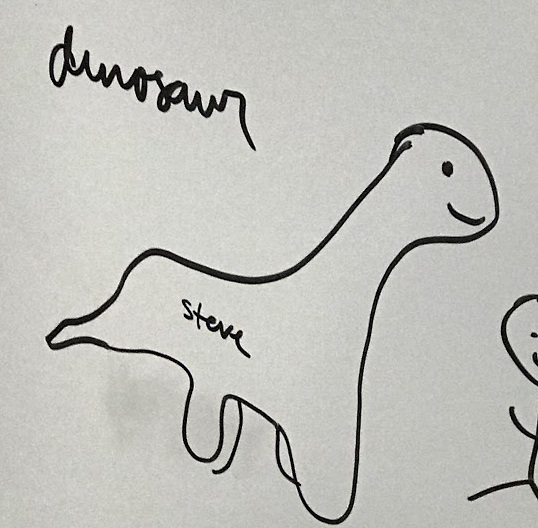 dinosaur
steve